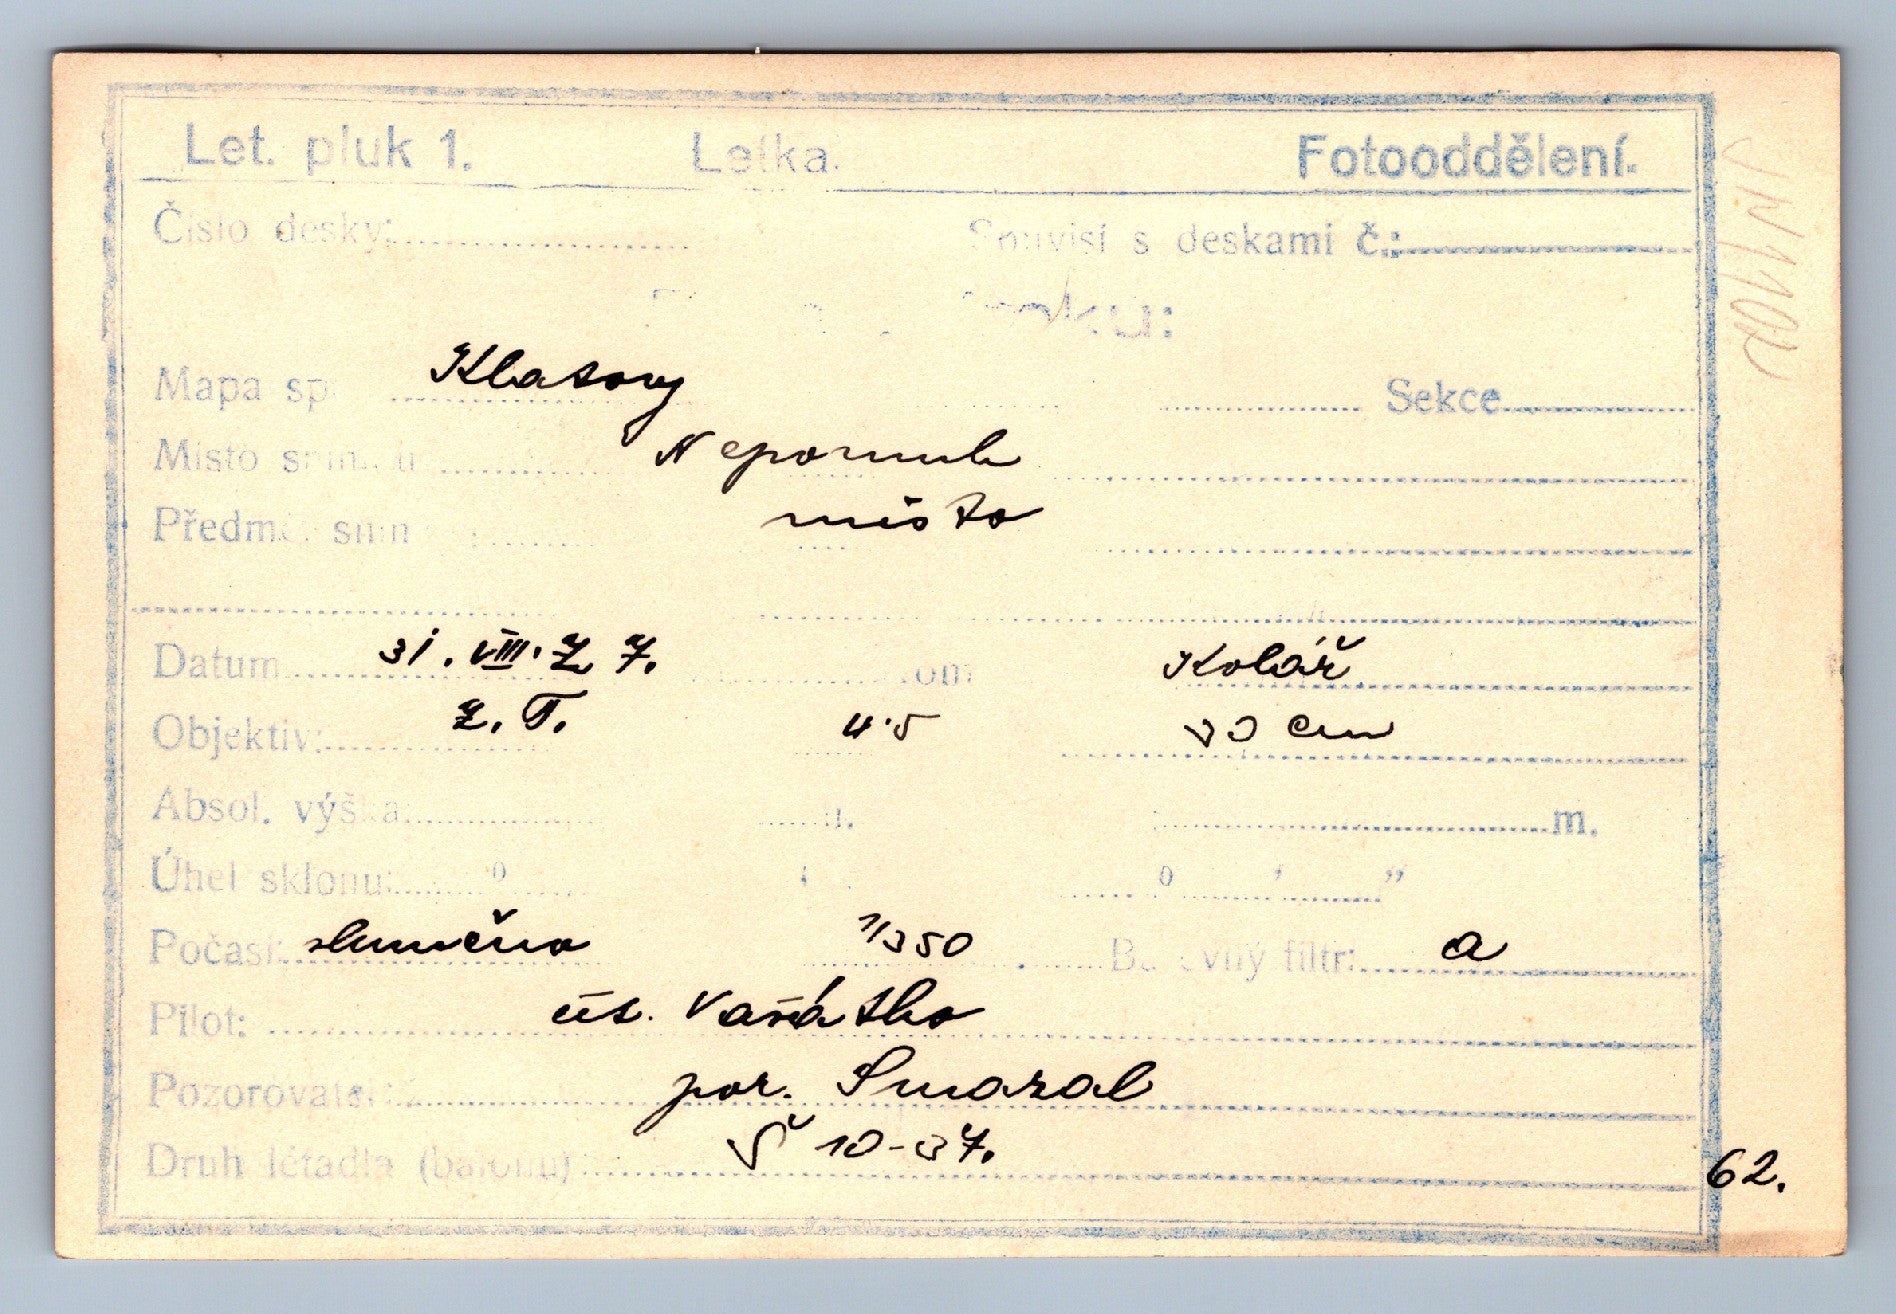 Let. pluk 1. Letka. Fotooddělení.
Číslo desky: Souvisí s deskami č.:
Mapa sp Klatovy Sekce
Místo snímku Nepomuk
Předmě sním : místo
Datum 31. VIII. 27. Kolář
Objektiv: Z. T. 4.5 50 cm
Absol. výška: m.
Úhel sklonu: ° ° ' "
Počasí: slunečno 1/350 Barevný filtr: a
Pilot: Vaňátko
Pozorovatel: por. Smazal
Druh létadla (balonu) Š 10-37.
62.